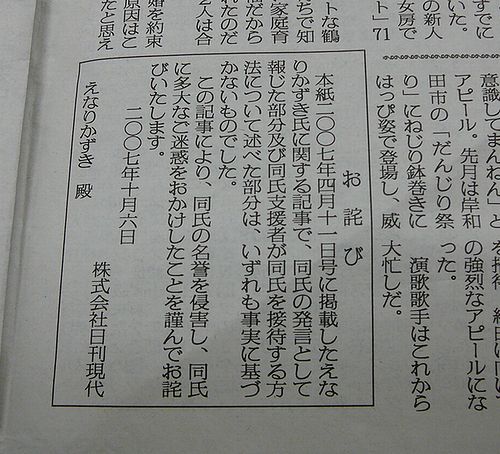 すでに
いた。
の新人
女房で
ト」71
トな鶴
ちで知
家庭育
だから
れたのだ
人は合
婚を約束
原因はこ
たと思え
意識してまんねん」と
アピール。先月は岸和
田市の「だんじり祭
り」にねじり鉢巻きに
はっぴ姿で登場し、威
の強烈なアピールにな
った。
演歌歌手はこれから
大忙しだ。
お詫び
本紙二〇〇七年四月十一日号に掲載したえな
りかずき氏に関する記事で、同氏の発言として
報じた部分及び同氏支援者が同氏を接待する方
法について述べた部分は、いずれも事実に基づ
かないものでした。
この記事により、同氏の名誉を侵害し、同氏
に多大なご迷惑をおかけしたことを謹んでお詫
びいたします。
二〇〇七年十月六日
株式会社日刊現代
えなりかずき 殿